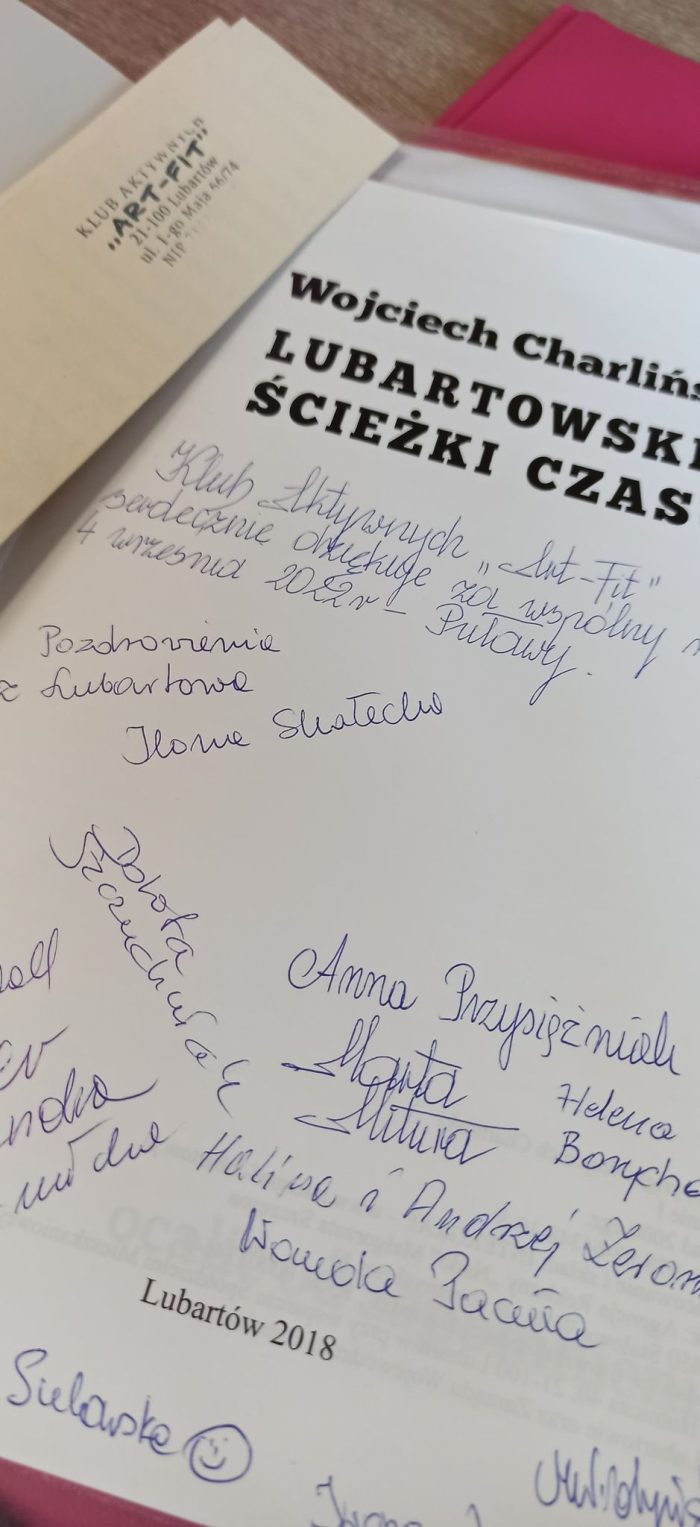 KLUB AKTYWNYCH
„ART-FIT”
21-100 Lubartów
ul. 1-go Maja 66/74
NIP
Wojciech Charlińs
LUBARTOWSKI
ŚCIEŻKI CZAS
Klub Aktywnych „Art-Fit”
serdecznie dziękuje za wspólny
4 września 2022r – Puławy.
Pozdrowienia
z Lubartowa
Ilona Skałecka
Dorota
Anna Przysiężniak
Marta
Mitura
Helena
Halina i Andrzej Żerom
Wanda Pacuła
Lubartów 2018